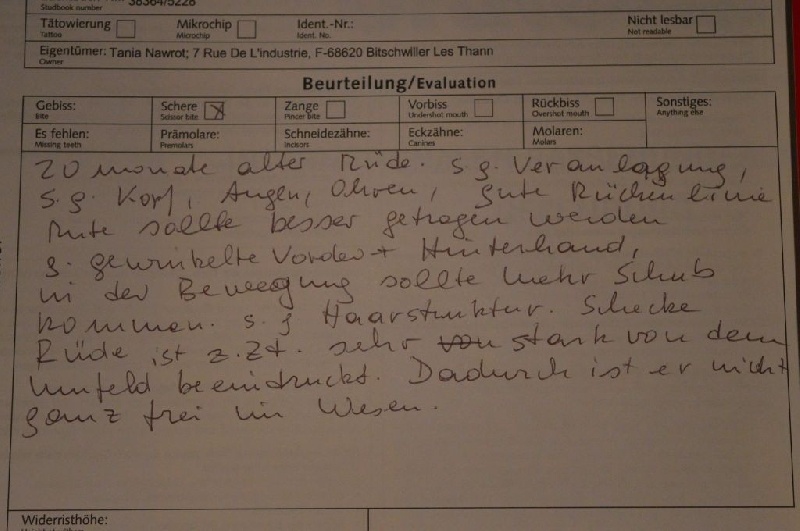 38364/5228
Studbook number
Tätowierung
Tattoo
Mikrochip
Microchip
Ident.-Nr.:
Ident. No.
Nicht lesbar
Not readable
Eigentümer: Tania Nawrot; 7 Rue De L'industrie, F-68620 Bitschwiller Les Thann
Owner
Beurteilung/Evaluation
Gebiss:
Bite
Schere
Scissor bite
Zange
Pincer bite
Vorbiss
Undershot mouth
Rückbiss
Overshot mouth
Sonstiges:
Anything else
Es fehlen:
Missing teeth
Prämolare:
Premolars
Schneidezähne:
Incisors
Eckzähne:
Canines
Molaren:
Molars
20 monate alter Rüde. s.g. Veranlagung,
s.g. Kopf, Augen, Ohren, gute Rückenlinie
Rute sollte besser getragen werden
g. gewinkelte Vorder + Hinterhand,
in der Bewegung sollte mehr Schub
kommen. s.g Haarstruktur. Schecke
Rüde ist z.Zt. sehr stark von dem
Umfeld beeindruckt. Dadurch ist er nicht
ganz frei im Wesen.
Widerristhöhe: